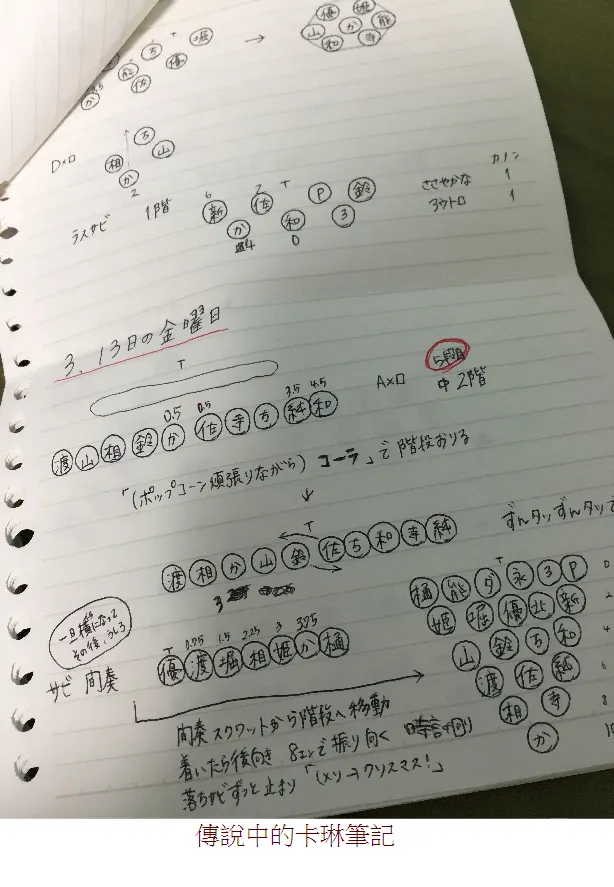 T
ち 堀
か 能 佐 優
→
優 姫
山 か 能
和 寺
Dメロ
ち
相 山
か
2
ラスサビ 1階
6 2 T
新 佐 P 鈴
か 和 3
4 0
カノン
ささやかな 1
3ウトロ 1
3. 13日の金曜日
T
Aメロ 5段目
中2階
0.5 0.5 3.5 4.5
渡 山 相 鈴 か 佐 寺 ち 純 和
「(ポップコーン頬張りながら) コーラ」で階段おりる
↓
T
渡 相 か 山 鈴 佐 ち 和 寺 純
3
ずんタッずんタッ
一旦横になって
その後、うしろ
サビ 間奏
T 0.75 1.5 2.25 3 3.75
優 渡 堀 相 姫 か 樋
T
樋 能 ダ 永 3 P 0
姫 堀 優 北 新 2
山 鈴 ち 和 4
渡 佐 純
相 寺 8
か 10
間奏スクワットから階段へ移動
着いたら後向き 8エンで振り向く 時計回り
落ちサビずっと止まり 「メリークリスマス!」
傳說中的卡琳筆記